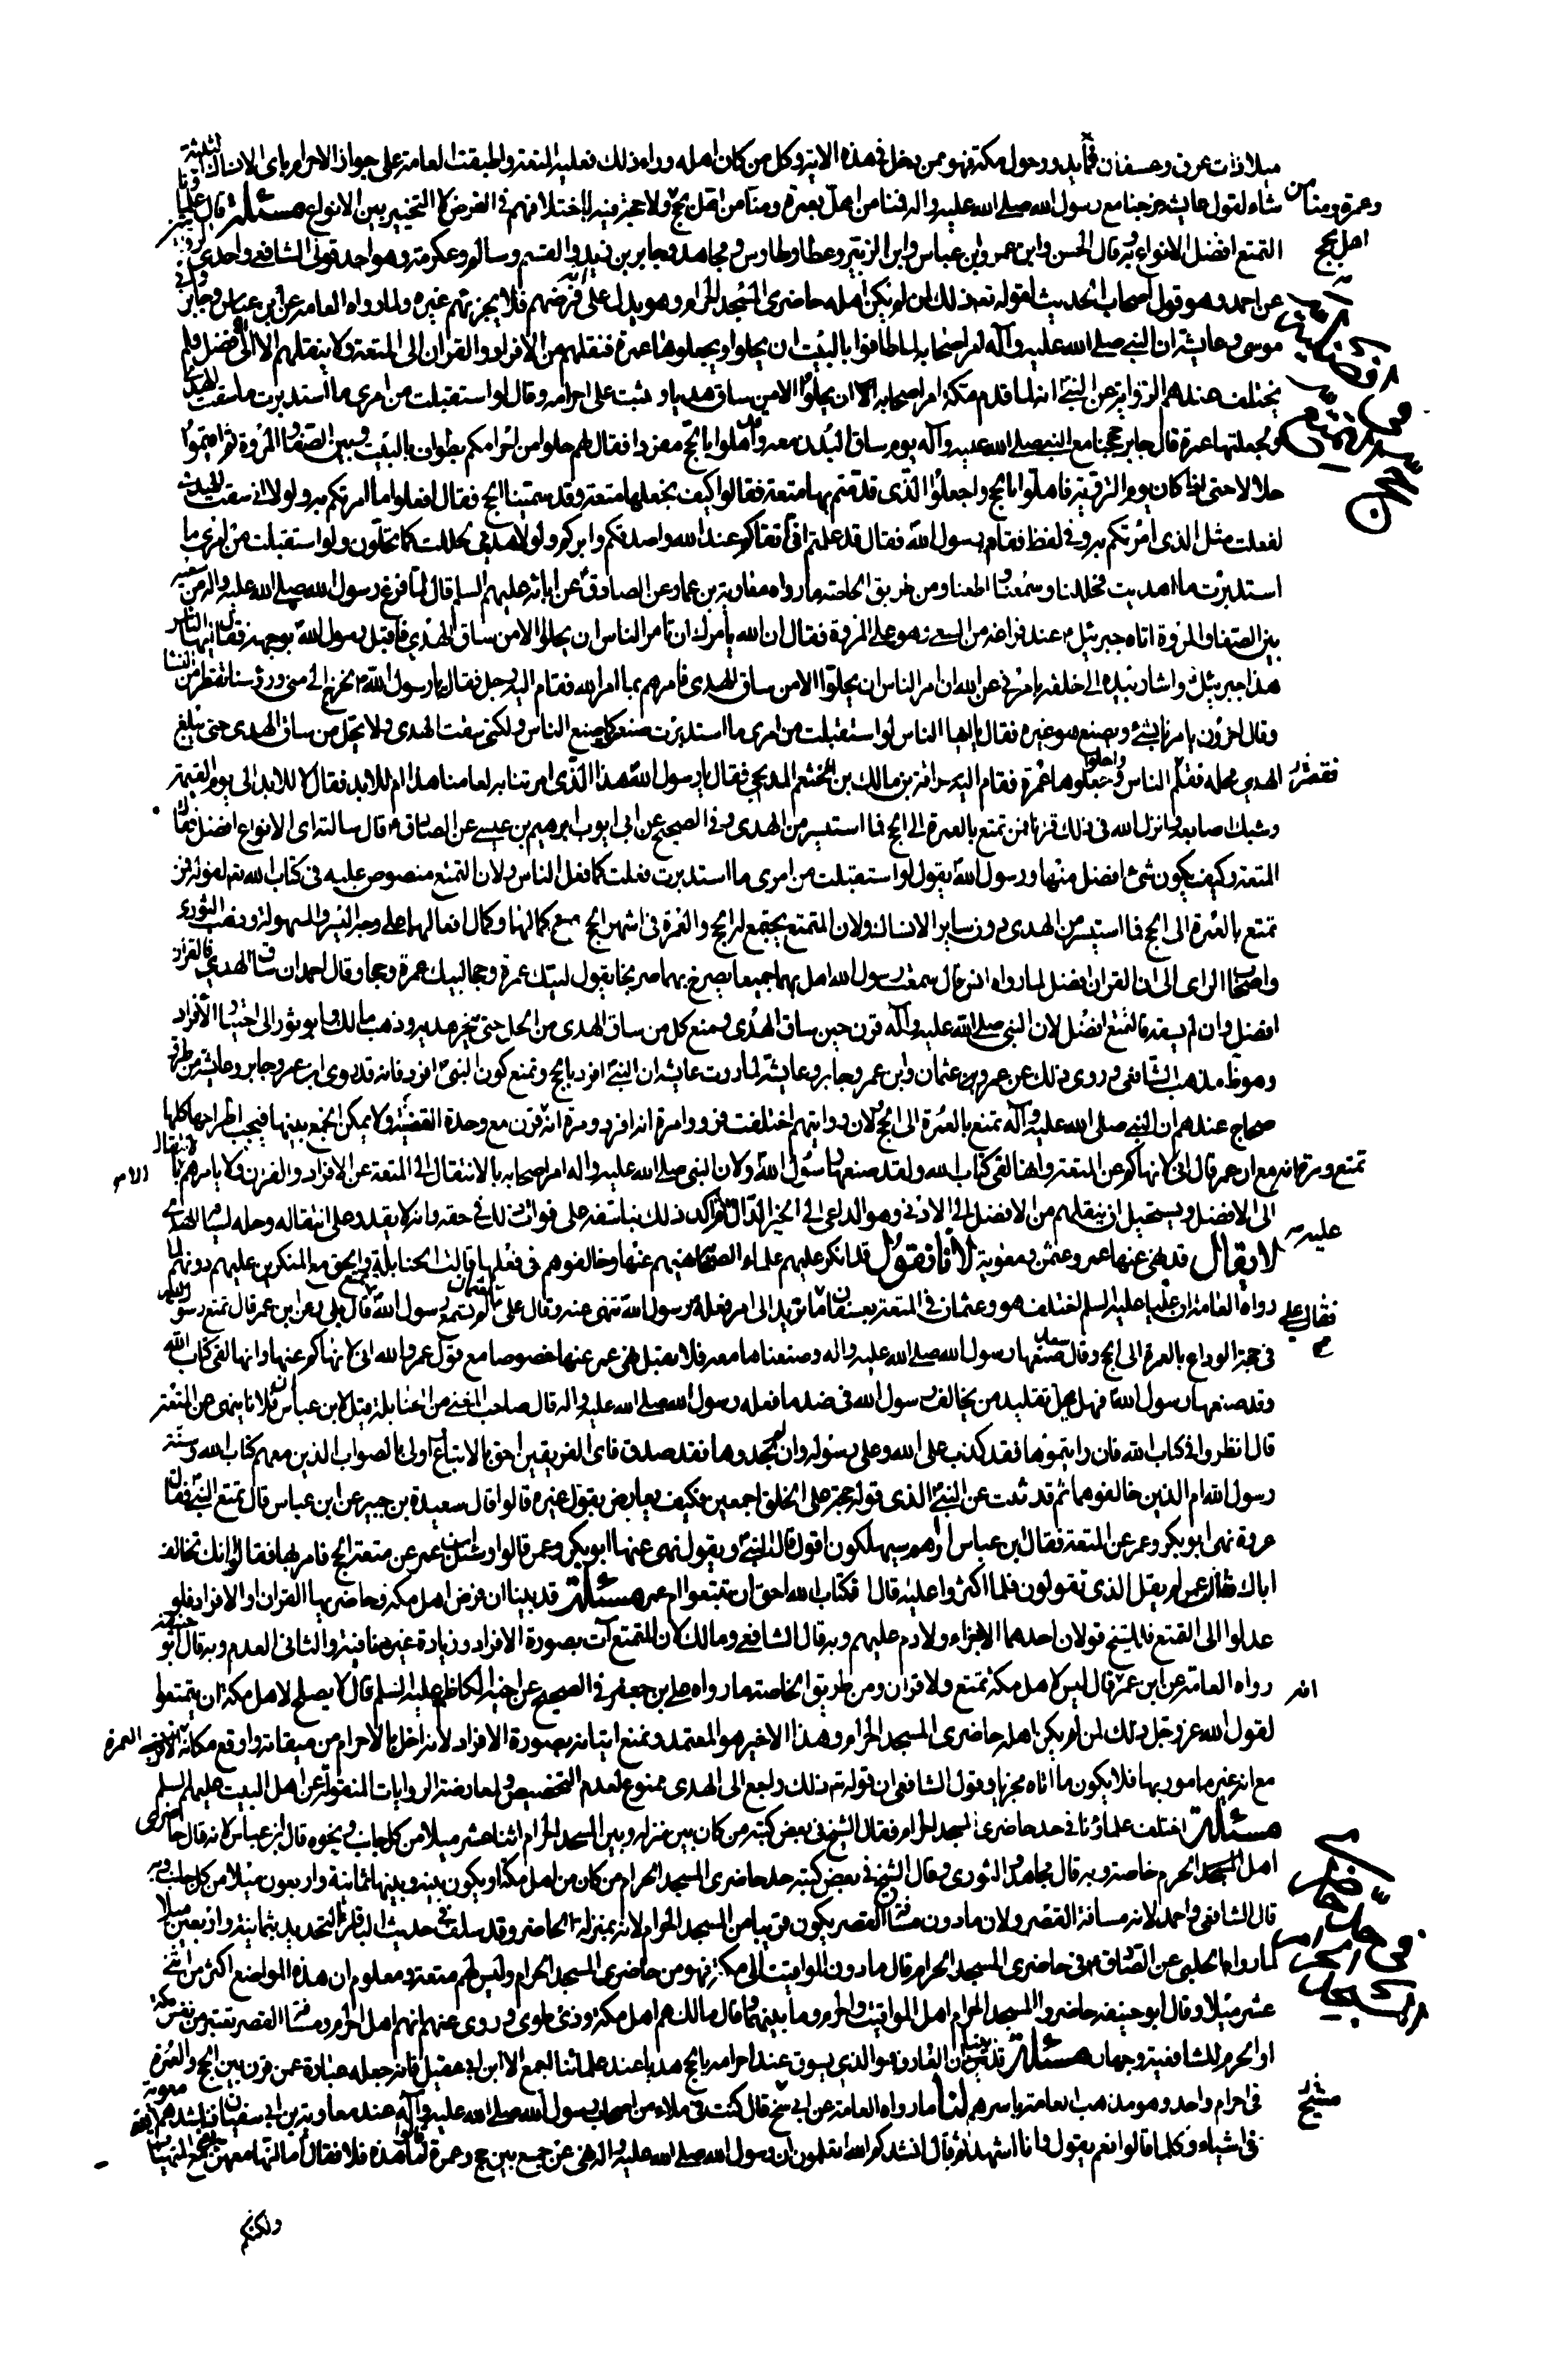 ميلا ذات عرق وعسفان فما يدور حول مكة فهو ممن يدخل في هذه الاية وكل من كان اهله وراء ذلك فعليه المتعة واطبقت العامة على جواز الاحرام باى الانساك الثلثة
شاء لقول عايشة خرجنا مع رسول الله صلى الله عليه واله فمنا من اهل بعمرة ومنا من اهل بحج ولا حجة فيه مسئلة قال علماؤنا
التمتع افضل الانواع وبه قال الحسن وابن عمر وابن عباس وابن الزبير وعطا وطاوس ومجاهد وجابر بن زيد والقسم وسالم وعكرمة وهو احد قولى الشافعي واحدى
عن احمد وهو قول اصحاب الحديث لقوله تعالى ذلك لمن لم يكن اهله حاضرى المسجد الحرام وهو يدل على انه فرضهم فلا يجزئهم غيره ولما رواه العامة عن ابن عباس وجابر
موسى وعايشة ان النبي صلى الله عليه وآله امر اصحابه لما طافوا بالبيت ان يحلوا ويجعلوها عمرة فنقلهم من الافراد والقران الى المتعة ولا ينقلهم الا الى الافضل ولم
يختلف عندهم الرواية عن النبي انه لما قدم مكة امر اصحابه ان يحلوا الا من ساق هديا وثبت على احرامه وقال لو استقبلت من امرى ما استدبرت ما سقت الهدى
ولجعلتها عمرة قال جابر حججنا مع النبي صلى الله عليه وآله يوم ساق البدن معه وقد اهلوا بالحج مفردا فقال لهم حلوا من احرامكم بطواف بالبيت وبين الصفا والمروة ثم اقيموا
حلالا حتى اذا كان يوم التروية فاهلوا بالحج واجعلوا الذى قدمتم بها متعة فقالوا كيف نجعلها متعة وقد سمينا الحج فقال افعلوا ما امرتكم به ولولا انى سقت الهدى
لفعلت مثل الذى امرتكم به وفي لفظ فقام رسول الله فقال قد علمتم انى اتقاكم عند الله واصدقكم وابركم ولولا هديى لحللت كما تحلون ولو استقبلت من امرى ما
استدبرت ما اهديت فحللنا وسمعنا واطعنا ومن طريق الخاصة ما رواه معاوية بن عمار عن الصادق عن ابائه عليهم السلم قال لما فرغ رسول الله صلى الله عليه واله من سعيه
بين الصفا والمروة اتاه جبرئيل عند فراغه من السعى وهو على المروة فقال ان الله يأمرك ان تامر الناس ان يحلوا الا من ساق الهدي فاقبل رسول الله بوجهه فقال ايها الناس
هذا جبرئيل واشار بيده الى خلفه يامرنى عن الله ان امر الناس ان يحلوا الا من ساق الهدى فامرهم بما امر الله فقام اليه رجل فقال يا رسول الله نخرج الى منى ورؤسنا تقطر من النسا
وقال اخرون يامرنا بشئ ويصنع هو غيره فقال يا ايها الناس لو استقبلت من امرى ما استدبرت صنعت كما صنع الناس ولكنى سقت الهدى ولا يحل من ساق الهدى حتى يبلغ
الهدى محله فقصر الناس واحلوا وجعلوها عمرة فقام اليه سراقة بن مالك بن جشعم المدلجى فقال يا رسول الله هذا الذى امرتنا به لعامنا هذا ام للابد فقال لا للابد الى يوم القيمة
وشبك اصابعه وانزل الله فى ذلك قرانا فمن تمتع بالعمرة الى الحج فما استيسر من الهدى وفى الصحيح عن ابى ايوب ابرهيم بن عيسى عن الصادق قال سالته اى الانواع افضل فقال
المتعة وكيف يكون شئ افضل منها ورسول الله يقول لو استقبلت من امرى ما استدبرت فعلت كما فعل الناس ولان التمتع منصوص عليه فى كتاب الله تعالى لقوله فمن
تمتع بالعمرة الى الحج فما استيسر من الهدى دون ساير الانساك ولان المتمتع يجتمع له الحج والعمرة فى اشهر الحج مع كمالهما وكمال افعالهما على وجه اليسر والسهولة وذهب الثورى
واصحاب الراى الى ان القران افضل لما رواه انس قال سمعت رسول الله اهل بهما جميعا يصرخ بهما صراخا يقول لبيك عمرة وحجا لبيك عمرة وحجا وقال احمد ان ساق الهدي فالقران
افضل وان لم يسقه فالتمتع افضل لان النبي صلى الله عليه وآله قرن حين ساق الهدى ومنع كل من ساق الهدى من الحل حتى ينحر هديه وذهب مالك وابو ثور الى اختيار الافراد
وهو ظ مذهب الشافعى وروى ذلك عن عمر وعثمان وابن عمر وجابر وعايشة لما روت عايشة ان النبي افرد بالحج ونمنع كون النبي افرد فانه قد روى ابن عمر وجابر وعايشة من طرق
صحاح عندهم ان النبي صلى الله عليه وآله تمتع بالعمرة الى الحج ولان روايتهم اختلفت فرووا مرة انه افرد ومرة انه قرن مع وحدة القضية ولا يمكن الجمع بينها فيجب اطراحها كلها
مع ان عمر قال انى لا نهاكم عن المتعة وانها لفى كتاب الله ولقد صنعها رسول الله ولان النبى صلى الله عليه واله امر اصحابه بالانتقال الى المتعة عن الافراد والقران ولا يامرهم الا
الى الافضل ويستحيل ان ينقلهم من الافضل الى الادنى وهو الداعى الى الخير الدال عليه ثم اكد ذلك بتاسفه على فوات ذلك فى حقه وانه لا يقدر على انتقاله وحله لسياقه الهدى
لا يقال قد نهى عنها عمر وعثمن ومعوية لانا نقول قد انكر عليهم علماء الصحابة نهيهم عنها وخالفوهم فى فعلها قالت الحنابلة والحق مع المنكرين عليهم دونهم لما
رواه العامة ان عليا عليه السلم اختلف هو وعثمان فى المتعة بعسفان فقال علي ما تريد الى امر فعله رسول الله تنهى عنه وقال على لعثمان الم تسمع رسول الله تمتع قال بلى وعن ابن عمر قال تمتع رسول الله
فى حجة الوداع بالعمرة الى الحج وقال سعد صنعها رسول الله صلى الله عليه واله وصنعناها معه فلا يقبل نهى عمر عنها خصوصا مع قول عمر والله انى لا نهاكم عنها وانها لفى كتاب الله
وقد صنعها رسول الله فهل يحل تقليد من يخالف رسول الله فى ضد ما فعله رسول الله صلى الله عليه واله قال صاحب المغنى من الحنابلة قيل لابن عباس ان فلانا ينهى عن المتعة
قال انظروا فى كتاب الله فان وجدتموها فقد كذب على الله وعلى رسوله وان لم تجدوها فقد صدق فاى الفريقين احق بالاتباع واولى بالصواب الذين معهم كتاب الله وسنة
رسول الله ام الذين خالفوهما ثم قد ثبت عن النبي الذى قوله حجة على الخلق اجمعين فكيف يعارض بقول غيره قالوا قال سعيد بن جبير عن ابن عباس قال تمتع النبي فقال
عروة نهى ابو بكر وعمر عن المتعة فقال ابن عباس اراهم سيهلكون اقول قال النبي ويقول نهى عنها ابو بكر وعمر قالوا وسئل ابن عمر عن متعة الحج فامر بها فقالوا انك تخالف
اباك فقال عمر لم يقل الذى تقولون فلما اكثروا عليه قال افكتاب الله احق ان تتبعوا ام عمر مسئلة قد بينا ان فرض اهل مكة وحاضريها القران او الافراد فلو
عدلوا الى التمتع فللشيخ قولان احدهما الاجزاء ولا دم عليهم وبه قال الشافعي ومالك لان المتمتع آت بصورة الافراد وزيادة غير منافية والثانى العدم وبه قال ابو حنيفة
رواه العامة عن ابن عمر قال ليس لاهل مكة تمتع ولا قران ومن طريق الخاصة ما رواه على بن جعفر فى الصحيح عن اخيه الكاظم عليه السلم قال لا يصلح لاهل مكة ان يتمتعوا
لقول الله عز وجل ذلك لمن لم يكن اهله حاضرى المسجد الحرام وهذا الاخير هو المعتمد ونمنع اتيانه بصورة الافراد لانه اخل بالاحرام من ميقاته واوقع مكانه العمرة
مع انه غير مامور بها فلا يكون ما اتاه مجزيا وقول الشافعى ان قوله تعالى ذلك راجع الى الهدى ممنوع لعدم التخصيص ولمعارضة الروايات المنقولة عن اهل البيت عليهم السلم
مسئلة اختلف علماؤنا فى حد حاضرى المسجد الحرام فقال الشيخ فى بعض كتبه من كان بين منزله وبين المسجد الحرام اثنا عشر ميلا من كل جانب ونحوه قال ابن عباس لانه قال حاضرى
اهل الحرم خاصة وبه قال مجاهد والثورى وقال الشيخ فى بعض كتبه حد حاضرى المسجد الحرام من كان من اهل مكة او يكون بينه وبينها ثمانية واربعون ميلا من كل جانب وبه
قال الشافعى واحمد لانه مسافة القصر ولان ما دون مسافة القصر يكون قريبا من المسجد الحرام لانه بمنزلة الحاضر وقد سلف فى حديث الباقر التحديد بثمانية واربعين ميلا
لما رواه الحلبى عن الصادق فى حاضرى المسجد الحرام قال ما دون المواقيت الى مكة فهو من حاضرى المسجد الحرام وليس لهم متعة ومعلوم ان هذه المواضع اكثر من اثنى
عشر ميلا وقال ابو حنيفة حاضروا المسجد الحرام اهل المواقيت والحرم وما بينهما وقال مالك هم اهل مكة وذى طوى وروى عنه انهم اهل الحرم ومسافة القصر تعتبر من نفس مكة
او الحرم للشافعية وجهان مسئلة قد بينا ان القارن هو الذى يسوق عند احرامه بالحج هديا عند علمائنا اجمع الا ابن ابى عقيل فانه جعله عبارة عمن قرن بين الحج والعمرة
فى احرام واحد وهو مذهب العامة باسرهم لنا ما رواه العامة عن ابى شيخ قال كنت فى ملاء من اصحاب رسول الله صلى الله عليه وآله عند معاوية بن ابى سفيان فناشدهم الله
فى اشياء وكلما قالوا نعم يقول وانا اشهد ثم قال انشدكم الله اتعلمون ان رسول الله صلى الله عليه واله نهى عن جمع بين حج وعمرة قالوا اما هذه فلا فقال اما انها معهن
ولكنكم